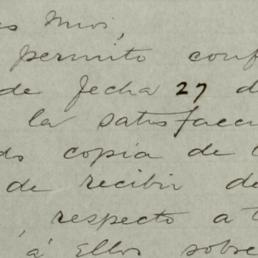 es Mios,
permito conf
de fecha 27 d
la satisfacci
ds copia de l
de recibir de
, respecto a t
á Ellos sobre